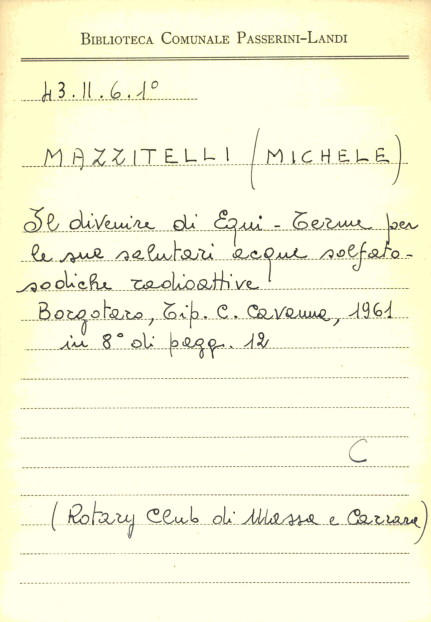 BIBLIOTECA COMUNALE PASSERINI-LANDI
43.II.6.1°
MAZZITELLI (MICHELE)
Il divenire di Equi-Terme per
le sue salutari acque solfato-
sodiche radioattive
Borgotaro, Tip. C. Cavanna, 1961
in 8° di pagg. 12
C
(Rotary Club di Massa e Carrara)